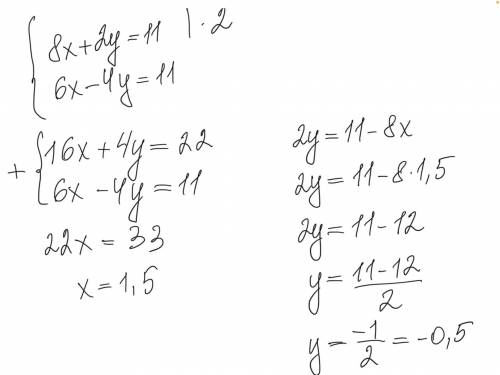 8x+2y=11 | · 2
6x-4y=11
+ 16x+4y=22
6x-4y=11
22x=33
x=1,5
2y=11-8x
2y=11-8·1,5
2y=11-12
y=\frac{11-12}{2}
y=\frac{-1}{2}=-0,5